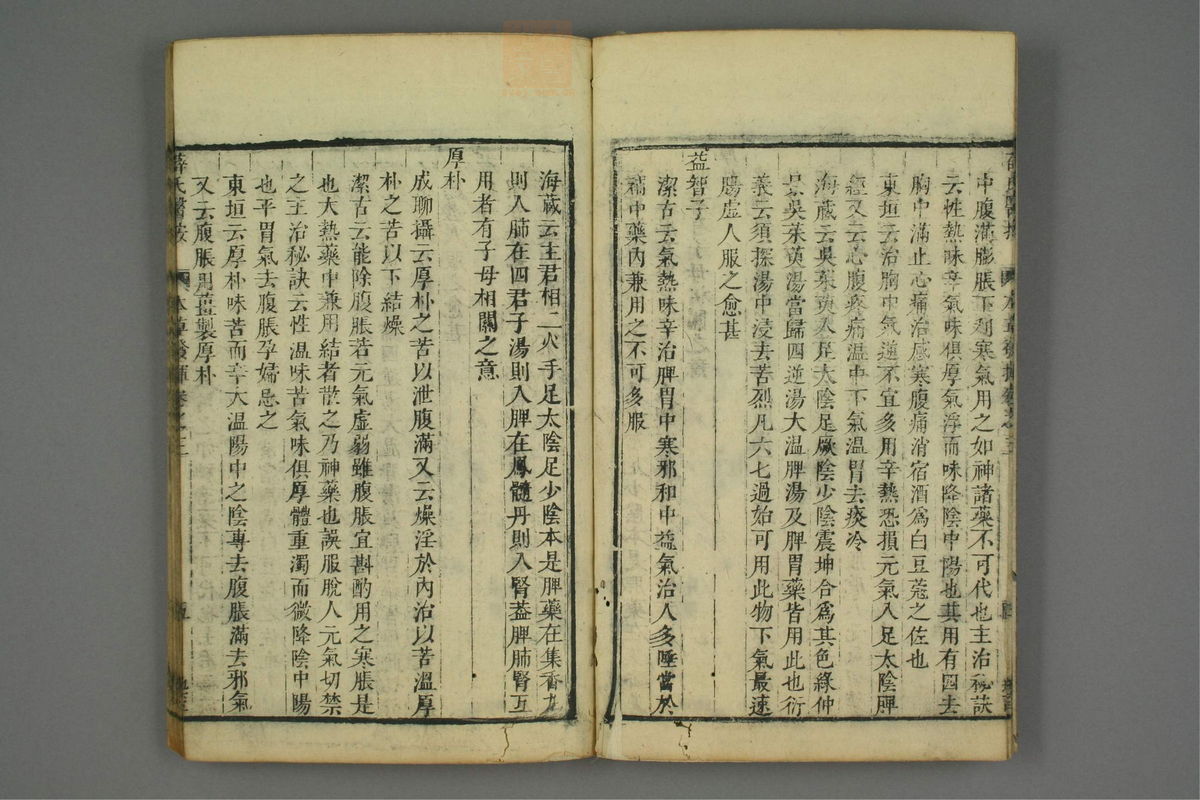 中腹滿膨脹下利寒氣用之如神諸藥不可代也主治秘訣
云性熱味辛氣味俱厚氣浮而味降陰中陽也其用有四去
胸中滿止心痛治感寒腹痛消宿酒爲白豆蔻之佐也
東垣云治胸中氣逆不宜多用辛熱恐損元氣入足太陰脾
經又云心腹疼痛溫中下氣溫胃去痰冷
海藏云吳茱萸入足太陰足厥陰少陰震坤合爲其色綠仲
景吳茱萸湯當歸四逆湯大溫脾湯及脾胃藥皆用此也衍
義云須探湯中浸去苦烈凡六七過始可用此物下氣最速
腸虛人服之愈甚
益智子
潔古云氣熱味辛治脾胃中寒邪和中益氣治人多唾當於
補中藥內兼用之不可多服
海藏云主君相二火手足太陰足少陰本是脾藥在集香丸
則入肺在四君子湯則入脾在鳳髓丹則入腎蓋脾肺腎互
用者有子母相關之意
厚朴
成聊攝云厚朴之苦以泄腹滿又云燥淫於內治以苦溫厚
朴之苦以下結燥
潔古云能除腹脹若元氣虛弱雖腹脹宜斟酌用之寒脹是
也大熱藥中兼用結者散之乃神藥也誤服脫人元氣切禁
之主治秘訣云性溫味苦氣味俱厚體重濁而微降陰中陽
也平胃氣去腹脹孕婦忌之
東垣云厚朴味苦而辛大溫陽中之陰專去腹脹滿去邪氣
又云腹脹用薑製厚朴
薛氏醫案 本草發揮卷之三